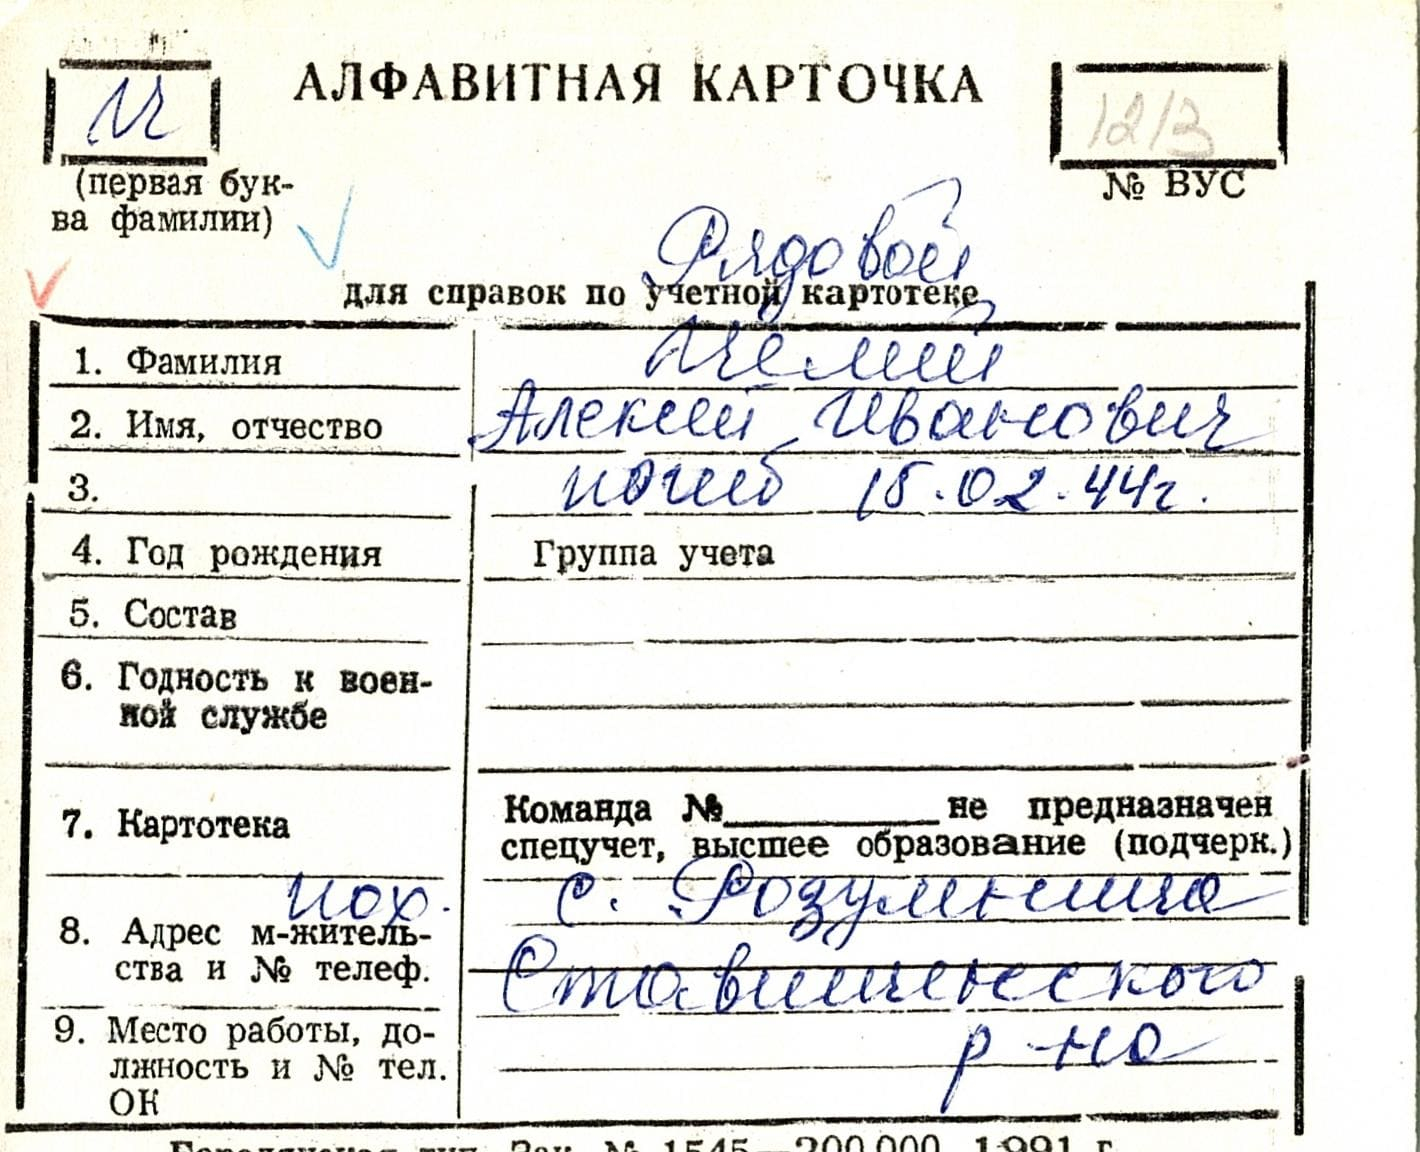 АЛФАВИТНАЯ КАРТОЧКА
12/3
(первая бук-
ва фамилии)
№ ВУС
Рядовой
для справок по учетной картотеке
1. Фамилия
2. Имя, отчество Алексей Иванович
3. погиб 15.02.44г.
4. Год рождения Группа учета
5. Состав
6. Годность к воен-
ной службе
7. Картотека Команда №__________ не предназначен
спецучет, высшее образование (подчерк.)
пох. с. Розумница
8. Адрес м-житель-
ства и № телеф. Ставищенского
р-на
9. Место работы, до-
лжность и № тел.
ОК
Бородянская тип. Зак. № 1545—200.000. 1991 г.